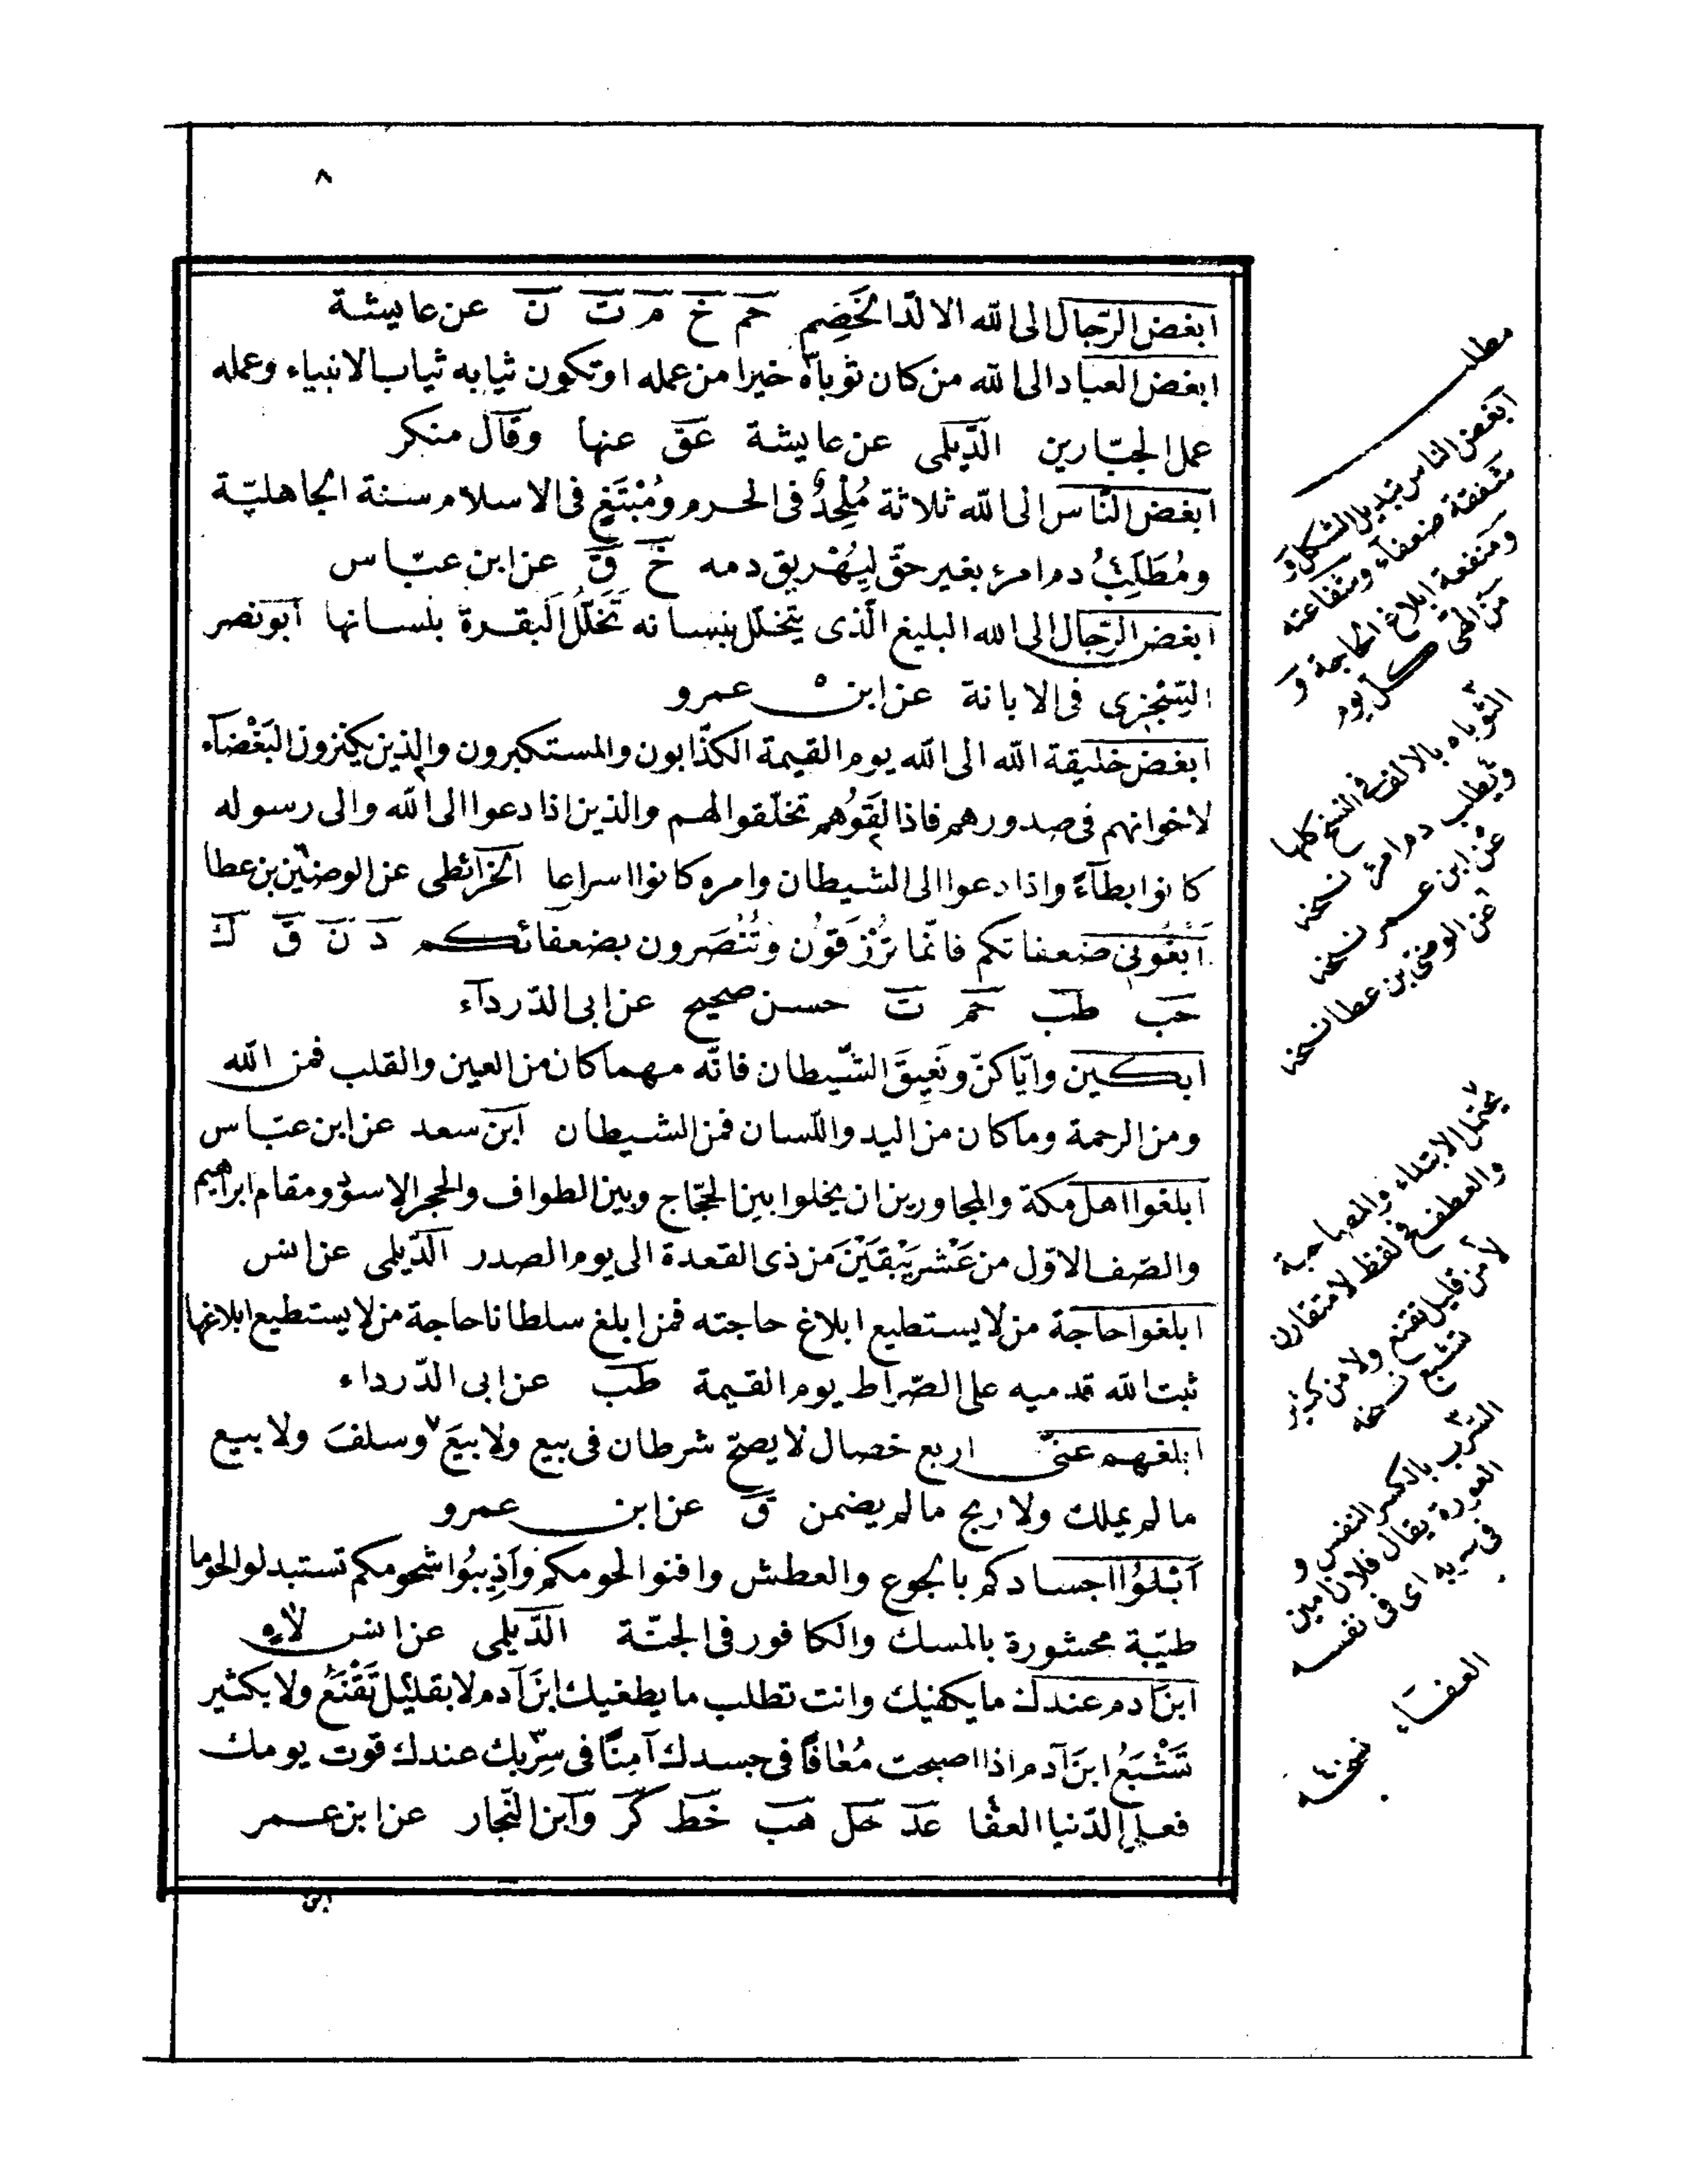 ٨
ابغض الرّجال الى الله الالدّ الخَصِم حَم خَ مَ تَ نَ عن عايشة
ابغض العباد الى الله من كان ثوباه خيرا من عمله او تكون ثيابه ثياب الانبياء وعمله
عمل الجبّارين الدّيلمى عن عايشة عَق عنها وقال منكر
ابغض النّاس الى الله ثلاثة مُلْحِدٌ فى الحرم ومُبْتَغٍ فى الاسلام سنة الجاهليّة
ومُطَلِّبُ دم امرئ بغير حقّ لِيُهَرِيق دمه خَ قَ عن ابن عبّاس
ابغض الرّجال الى الله البليغ الّذى يتخلّل بلسانه تَخَلُّلَ البقرة بلسانها ابونصر
السِّجْزِى فى الابانة عن ابن عمرو
ابغض خليقة الله الى الله يوم القيمة الكذّابون والمستكبرون والذين يكنزون البَغْضَآء
لاخوانهم فى صدورهم فاذا لَقَوُهم تخلّقوا لهم والذين اذا دعوا الى الله والى رسوله
كانوا بطآءً واذا دعوا الى الشيطان وامره كانوا اسراعا الخرآئطى عن الوضين بن عطا
اَبْغُونى ضعفاءكم فانّما تُرْزَقوُن وتُنْصَرون بضعفائكم دَ نَ قَ كَ
حَب طَب حَم تَ حسن صحيح عن ابى الدّردآء
ابكين وايّاكنّ ونَعِيقَ الشّيطان فانّه مهما كان من العين والقلب فمن الله
ومن الرحمة وما كان من اليد واللّسان فمن الشيطان ابن سعد عن ابن عبّاس
ابلغوا اهل مكة والمجاورين ان يخلوا بين الحجّاج وبين الطواف والحجر الاسود ومقام ابراهيم
والصّف الاوّل من عَشْرٍ يَبْقَيْنَ من ذى القعدة الى يوم الصدر الدّيلمى عن انس
ابلغوا حاجة من لا يستطيع ابلاغ حاجته فمن ابلغ سلطانا حاجة من لا يستطيع ابلاغها
ثبت الله قدميه على الصّراط يوم القيمة طَب عن ابى الدّرداء
ابلغهم عنّى اربع خصال لا يصحّ شرطان فى بيع ولا بيعَ وسلفَ ولا بيع
ما لم يملك ولا ربح ما لم يضمن قَ عن ابن عمرو
اَبْلُوُا اجسادكم بالجوع والعطش وافنوا لحومكم وَاَذِيبُوا شحومكم تستبدلوا لحوما
طيّبة محشورة بالمسك والكافور فى الجنّة الدّيلمى عن انس
ابنَ ادم عندك ما يكفيك وانت تطلب ما يطغيك ابنَ آدم لا بقليل تَقْنَعُ ولا بكثير
تَشْبَعُ ابنَ آدم اذا اصبحت مُعٰافًا فى جسدك آمِنًا فى سِرْبك عندك قوت يومك
فعلى الدّنيا العفا عَد حَل هَب خَط كَر وابن النّجار عن ابن عمر
ابن
مطلب
ابغض الناس تبديل الشكل و
شفقة ضعفآء وشفاعته
ومنفعة ابلاغ الحاجة و
كل يوم
الثوباه بالالف فى النسخ كلها
ويطلب دم امرئ نسخه
عن ابن عمر نسخه
عن الوضى بن عطا نسخه
يحتمل الابتداء والمصاحبة
والعطف فى لفظ لا متقارن
لا من قليل تقنع ولا من كثير
تشبع نسخه
السّرب بالكسر النفس و
العورة يقال فلان امين
فى سربه اى فى نفسه
العفاء نسخه